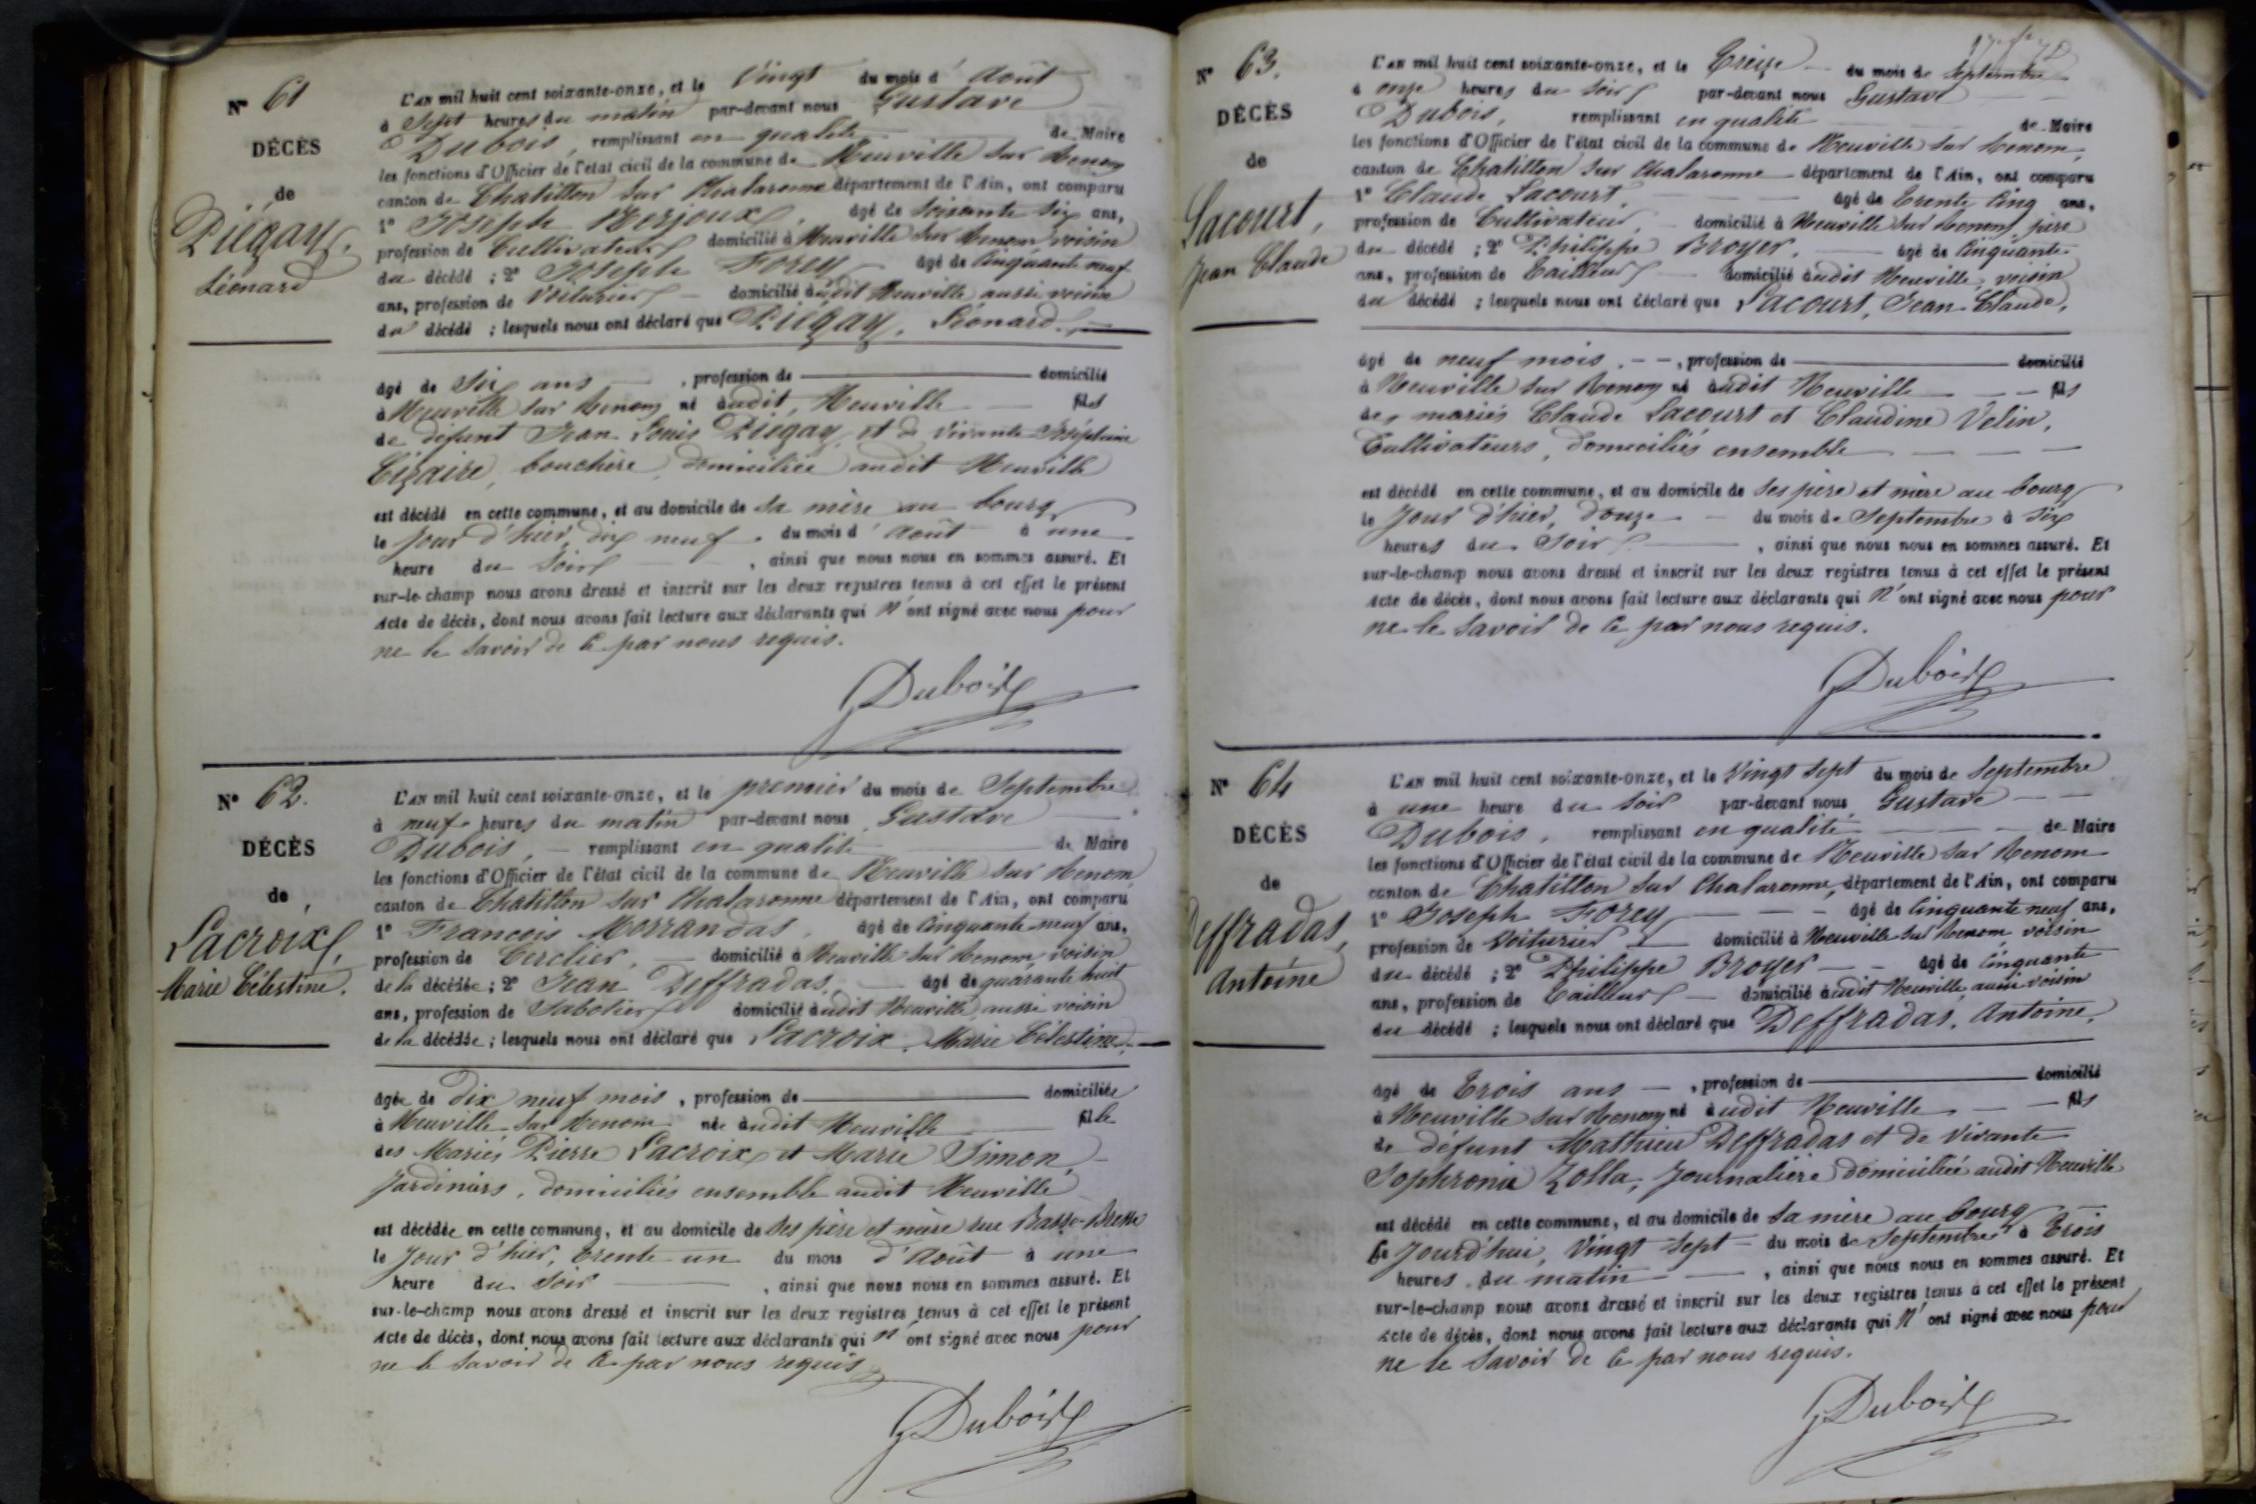 N° 61
DÉCÈS
de
Piégay,
Léonard
L'AN mil huit cent soixante-onze, et le Vingt du mois d' Août
à Sept heures du matin par-devant nous Gustave
Dubois, remplissant en qualité de Maire
les fonctions d'Officier de l'état civil de la commune de Neuville sur Renom
canton de Chatillon sur Chalaronne département de l'Ain, ont comparu
1° Joseph Merjoux, âgé de soixante six ans,
profession de Cultivateur domicilié à Neuville sur Renom voisin
du décédé ; 2° Joseph Forey âgé de cinquante neuf
ans, profession de Voiturier domicilié audit Neuville aussi voisin
du décédé ; lesquels nous ont déclaré que Piégay, Léonard.
âgé de Six ans , profession de domicilié
à Neuville sur Renom né audit Neuville fils
de défunt Jean Louis Piégay et de vivante Joséphine
Cizaire, bouchère, domiciliée audit Neuville
est décédé en cette commune, et au domicile de sa mère au bourg
le jour d'hier, dix neuf du mois d' Août à une
heure du Soir , ainsi que nous nous en sommes assuré. Et
sur-le-champ nous avons dressé et inscrit sur les deux registres tenus à cet effet le présent
Acte de décès, dont nous avons fait lecture aux déclarants qui n'ont signé avec nous pour
ne le savoir de ce par nous requis.
Dubois
N° 62.
DÉCÈS
de
Lacroix,
Marie Célestine.
L'AN mil huit cent soixante-onze, et le premier du mois de Septembre
à neuf heures du matin par-devant nous Gustave
Dubois, remplissant en qualité de Maire
les fonctions d'Officier de l'état civil de la commune de Neuville sur Renom
canton de Chatillon sur Chalaronne département de l'Ain, ont comparu
1° François Morrandas, âgé de Cinquante neuf ans,
profession de Cerclier, domicilié à Neuville sur Renom, voisin
de la décédée ; 2° Jean Deffradas, âgé de quarante huit
ans, profession de Sabotier domicilié audit Neuville aussi voisin
de la décédée ; lesquels nous ont déclaré que Lacroix, Marie Célestine,
âgée de Dix neuf mois , profession de domiciliée
à Neuville sur Renom née audit Neuville fille
des Mariés Pierre Lacroix et Marie Simon,
Jardiniers, domiciliés ensemble audit Neuville
est décédée en cette commune, et au domicile de ses père et mère rue Basse-Bresse
le jour d'hier, trente un du mois d'Août à une
heure du Soir , ainsi que nous nous en sommes assuré. Et
sur-le-champ nous avons dressé et inscrit sur les deux registres tenus à cet effet le présent
Acte de décès, dont nous avons fait lecture aux déclarants qui n'ont signé avec nous pour
ne le savoir de ce par nous requis
Dubois
N° 63.
DÉCÈS
de
Lacourt,
Jean Claude
L'AN mil huit cent soixante-onze, et le Treize du mois de Septembre
à onze heures du Soir par-devant nous Gustave
Dubois, remplissant en qualité de Maire
les fonctions d'Officier de l'état civil de la commune de Neuville sur Renom,
canton de Chatillon sur Chalaronne département de l'Ain, ont comparu
1° Claude Lacourt, âgé de trente cinq ans,
profession de Cultivateur, domicilié à Neuville sur Renom, père
du décédé ; 2° Philippe Broyer, âgé de Cinquante
ans, profession de Tailleur domicilié audit Neuville, voisin
du décédé ; lesquels nous ont déclaré que Lacourt, Jean Claude,
âgé de neuf mois. , profession de domicilié
à Neuville sur Renom né audit Neuville fils
des mariés Claude Lacourt et Claudine Velin,
Cultivateurs, domiciliés ensemble
est décédé en cette commune, et au domicile de ses père et mère au bourg
le jour d'hier, douze du mois de Septembre à six
heures du Soir , ainsi que nous nous en sommes assuré. Et
sur-le-champ nous avons dressé et inscrit sur les deux registres tenus à cet effet le présent
Acte de décès, dont nous avons fait lecture aux déclarants qui n'ont signé avec nous pour
ne le savoir de ce par nous requis.
Dubois
N° 64
DÉCÈS
de
Deffradas,
Antoine
L'AN mil huit cent soixante-onze, et le Vingt sept du mois de Septembre
à une heure du Soir par-devant nous Gustave
Dubois, remplissant en qualité de Maire
les fonctions d'Officier de l'état civil de la commune de Neuville sur Renom
canton de Chatillon sur Chalaronne, département de l'Ain, ont comparu
1° Joseph Forey âgé de Cinquante neuf ans,
profession de Voiturier domicilié à Neuville sur Renom voisin
du décédé ; 2° Philippe Broyer âgé de Cinquante
ans, profession de Tailleur domicilié audit Neuville, aussi voisin
du décédé ; lesquels nous ont déclaré que Deffradas, Antoine,
âgé de Trois ans , profession de domicilié
à Neuville sur Renom né audit Neuville fils
de défunt Mathieu Deffradas et de vivante
Sophronie Zolla, Journalière domiciliée audit Neuville
est décédé en cette commune, et au domicile de sa mère au bourg
ce jourd'hui, Vingt sept du mois de Septembre à Trois
heures du matin , ainsi que nous nous en sommes assuré. Et
sur-le-champ nous avons dressé et inscrit sur les deux registres tenus à cet effet le présent
Acte de décès, dont nous avons fait lecture aux déclarants qui n'ont signé avec nous pour
ne le savoir de ce par nous requis.
Dubois